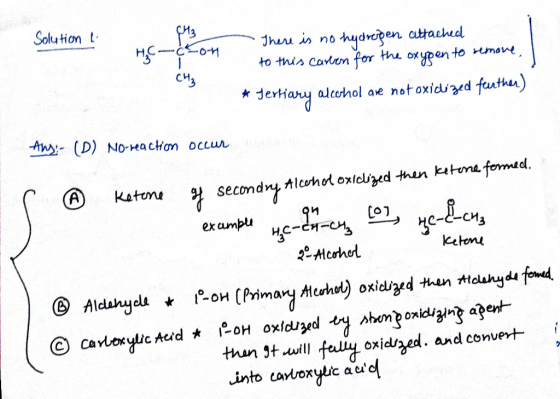 Solution 1.
CH3
H3C-C-O-H
CH3
There is no hydrogen attached
to this carbon for the oxygen to remove.
* Tertiary alcohol are not oxidized further)
Ans:- (D) No-reaction occur
(A) Ketone If secondry Alcohol oxidized then ketone formed.
example OH [O] O
H3C-CH-CH3 → H3C-C-CH3
2°-Alcohol Ketone
(B) Aldehyde * 1°-OH (Primary Alcohol) oxidized then Aldehyde fomed
(C) Carboxylic Acid * 1°-OH oxidized by strong oxidizing agent
then It will fully oxidized. and convert
into carboxylic acid